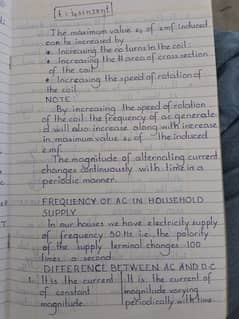 I = I₀ sin 2πnt
The maximum value e₀ of emf induced
can be increased by
• Increasing the no turns in the coil
• Increasing the area of cross section
of the coil
• Increasing the speed of rotation of
the coil
NOTE:
By increasing the speed of rotation
of the coil the frequency of ac generate
d will also increase along with increase
in maximum value e₀ of the induced
emf.
The magnitude of alternating current
changes continuously with time in a
periodic manner.
FREQUENCY OF AC IN HOUSEHOLD
SUPPLY
In our houses we have electricity supply
of frequency 50 Hz i.e. the polarity
of the supply terminal changes 100
times a second.
DIFFERENCE BETWEEN AC AND DC
1. It is the current It is the current of
of constant magnitude varying
magnitude. periodically with time